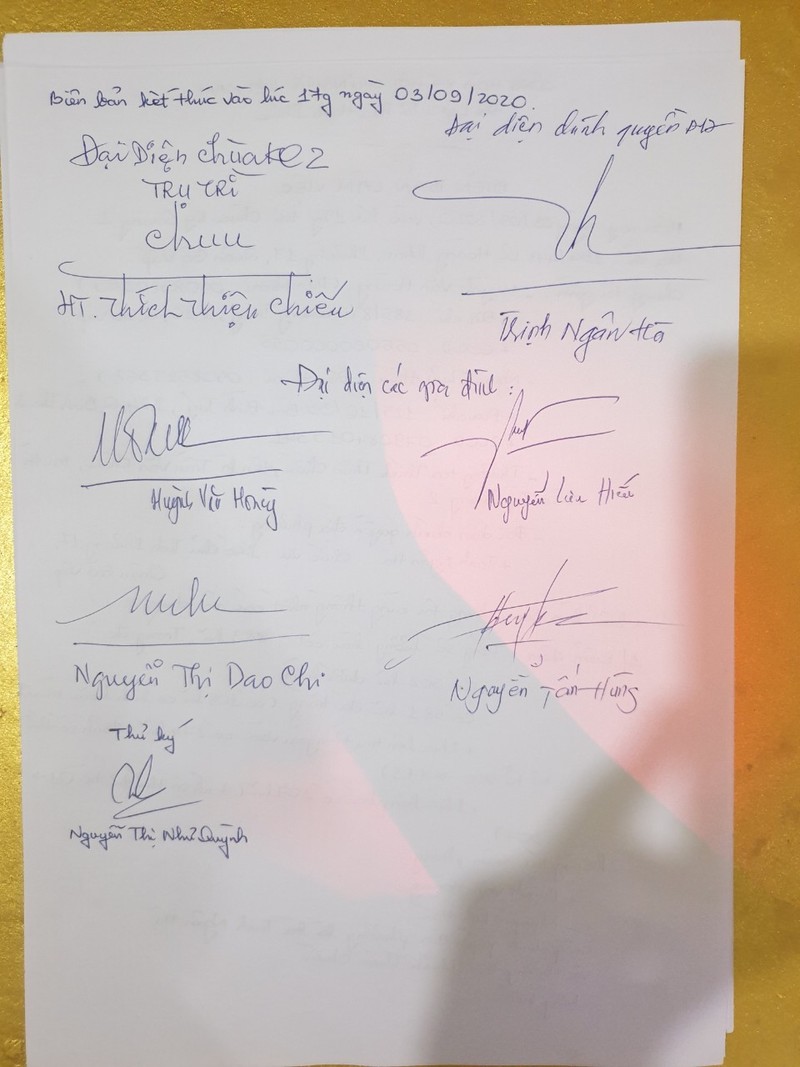 Biên bản kết thúc vào lúc 17g ngày 03/09/2020.
Đại Diện chùa KQ2
TRỤ TRÌ
HT. Thích Thiện Chiếu
Đại diện chính quyền ĐP
Trịnh Ngân Hà
Đại diện các gia đình:
Huỳnh Văn Hoàng
Nguyễn Lưu Hiếu
Nguyễn Thị Dao Chi
Nguyễn Tấn Hùng
Thư ký
Nguyễn Thị Như Quỳnh